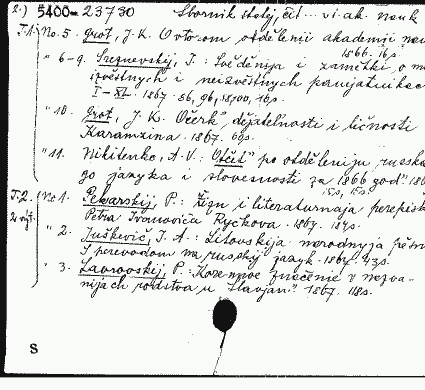 2.) 5400-23730 Sbornik statej, čit... v i. ak. nauk
T.1. No. 5. Grot, J. K. O vtorom otdělenii akademii nau
1866. 16s.
" 6-9. Sreznevskij, I.: Svěděnija i zamětki o m
izvěstnych i neizvěstnych pamjatnikac
I-XL. 1867.
" 10. Grot, J. K. Očerk dějatel'nosti i ličnosti
Karamzina. 1867. 69s.
" 11. Nikitenko, A. V.: Otčet" po otděleniju russka
go jazyka i slovesnosti za 1866 god".
T.2. No 1. Pekarskij, P.: Žizn i literaturnaja perepisk
Petra Ivanoviča Ryčkova. 1867. 184s.
" 2. Juškevič, I. A.: Litovskija narodnyja pěsn
S perevodom na russkij jazyk. 1867. 43s.
" 3. Lavrovskij, P.: Korennoe značenie v nazva-
nijach rodstva u Slavjan". 1867. 118s.
S